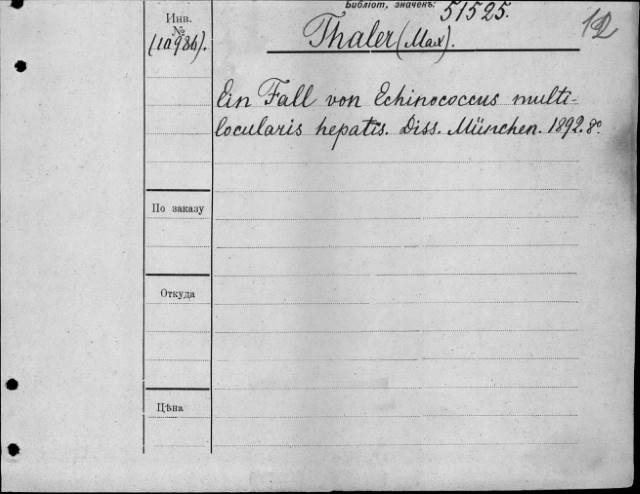 Библіот. значекъ: 51525.
Инв.
№
Thaler (Max).
12
Ein Fall von Echinococcus multi-
locularis hepatis. Diss. München. 1892. 8°.
По заказу
Откуда
Цѣна